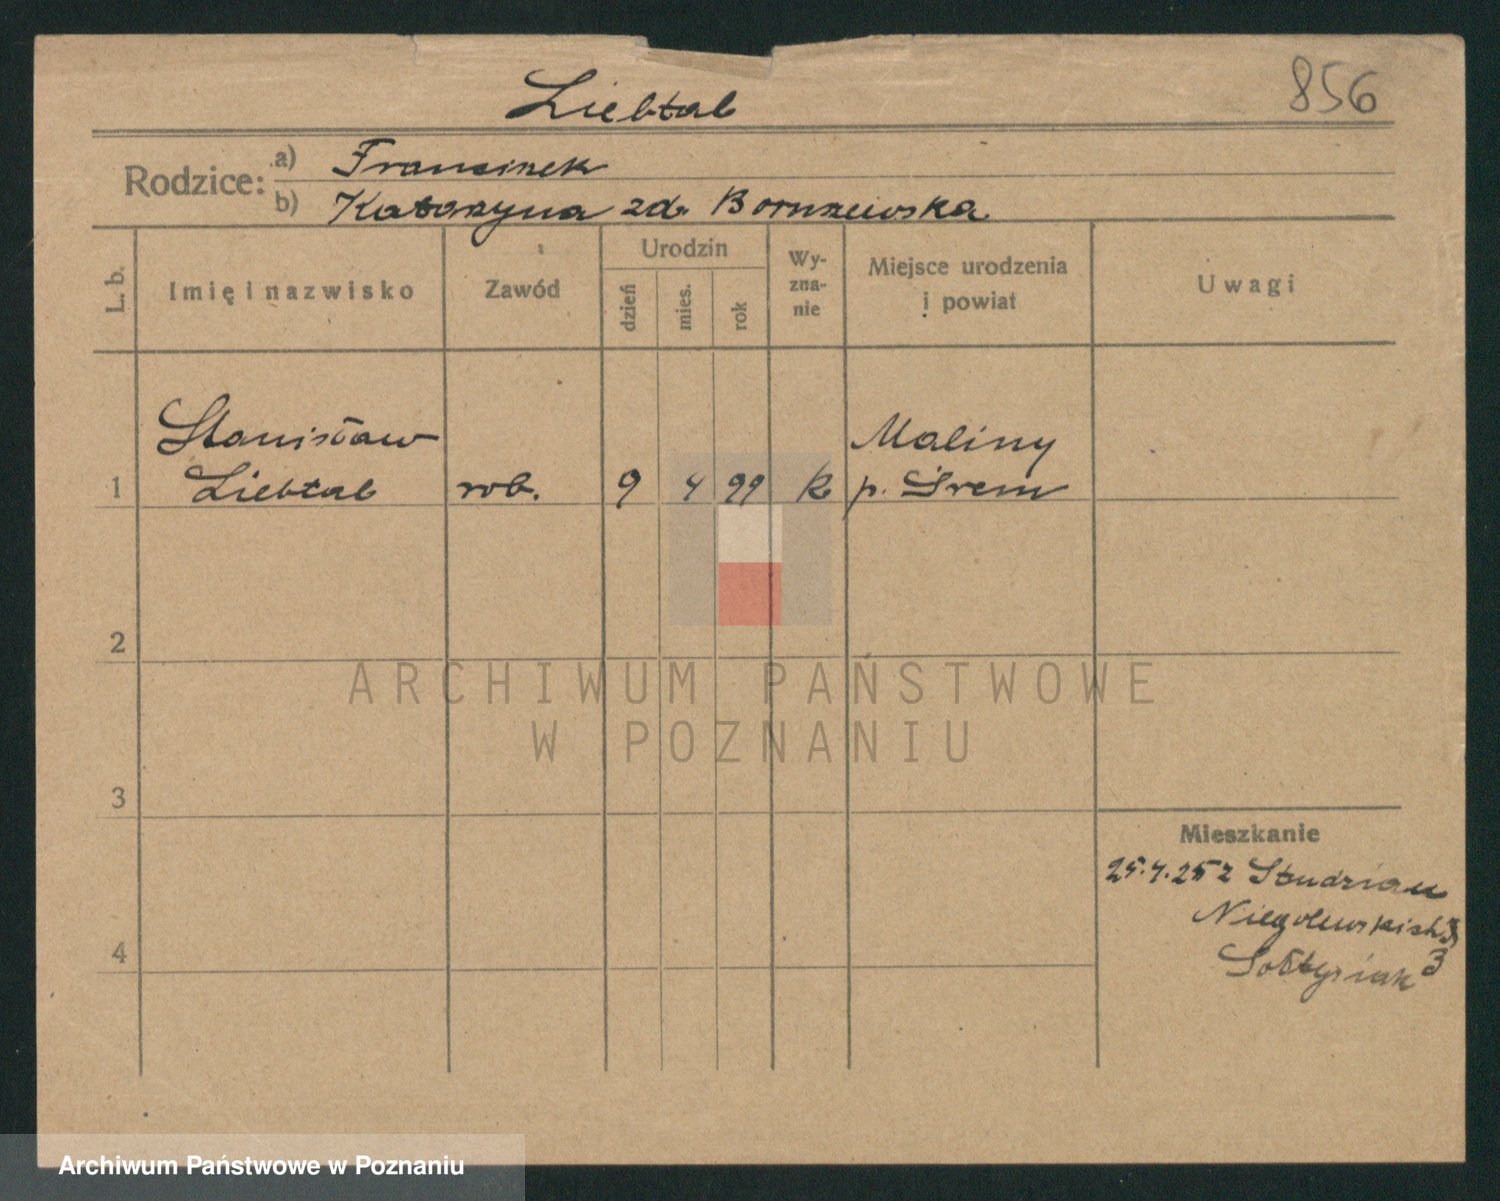 Liebtal
856
Rodzice: a) Franciszek
b) Katarzyna zd. Boruszewska
L. b.
Imię i nazwisko
Zawód
Urodzin
dzień
mies.
rok
Wy-
zna-
nie
Miejsce urodzenia
i powiat
Uwagi
Stanisław Maliny
1 Liebtal rob. 9 4 99 k p. Śrem
2
ARCHIWUM PAŃSTWOWE
W POZNANIU
3
Mieszkanie
25.4.25 z
Niegolewskich
4
Sołtysiak 3
Archiwum Państwowe w Poznaniu